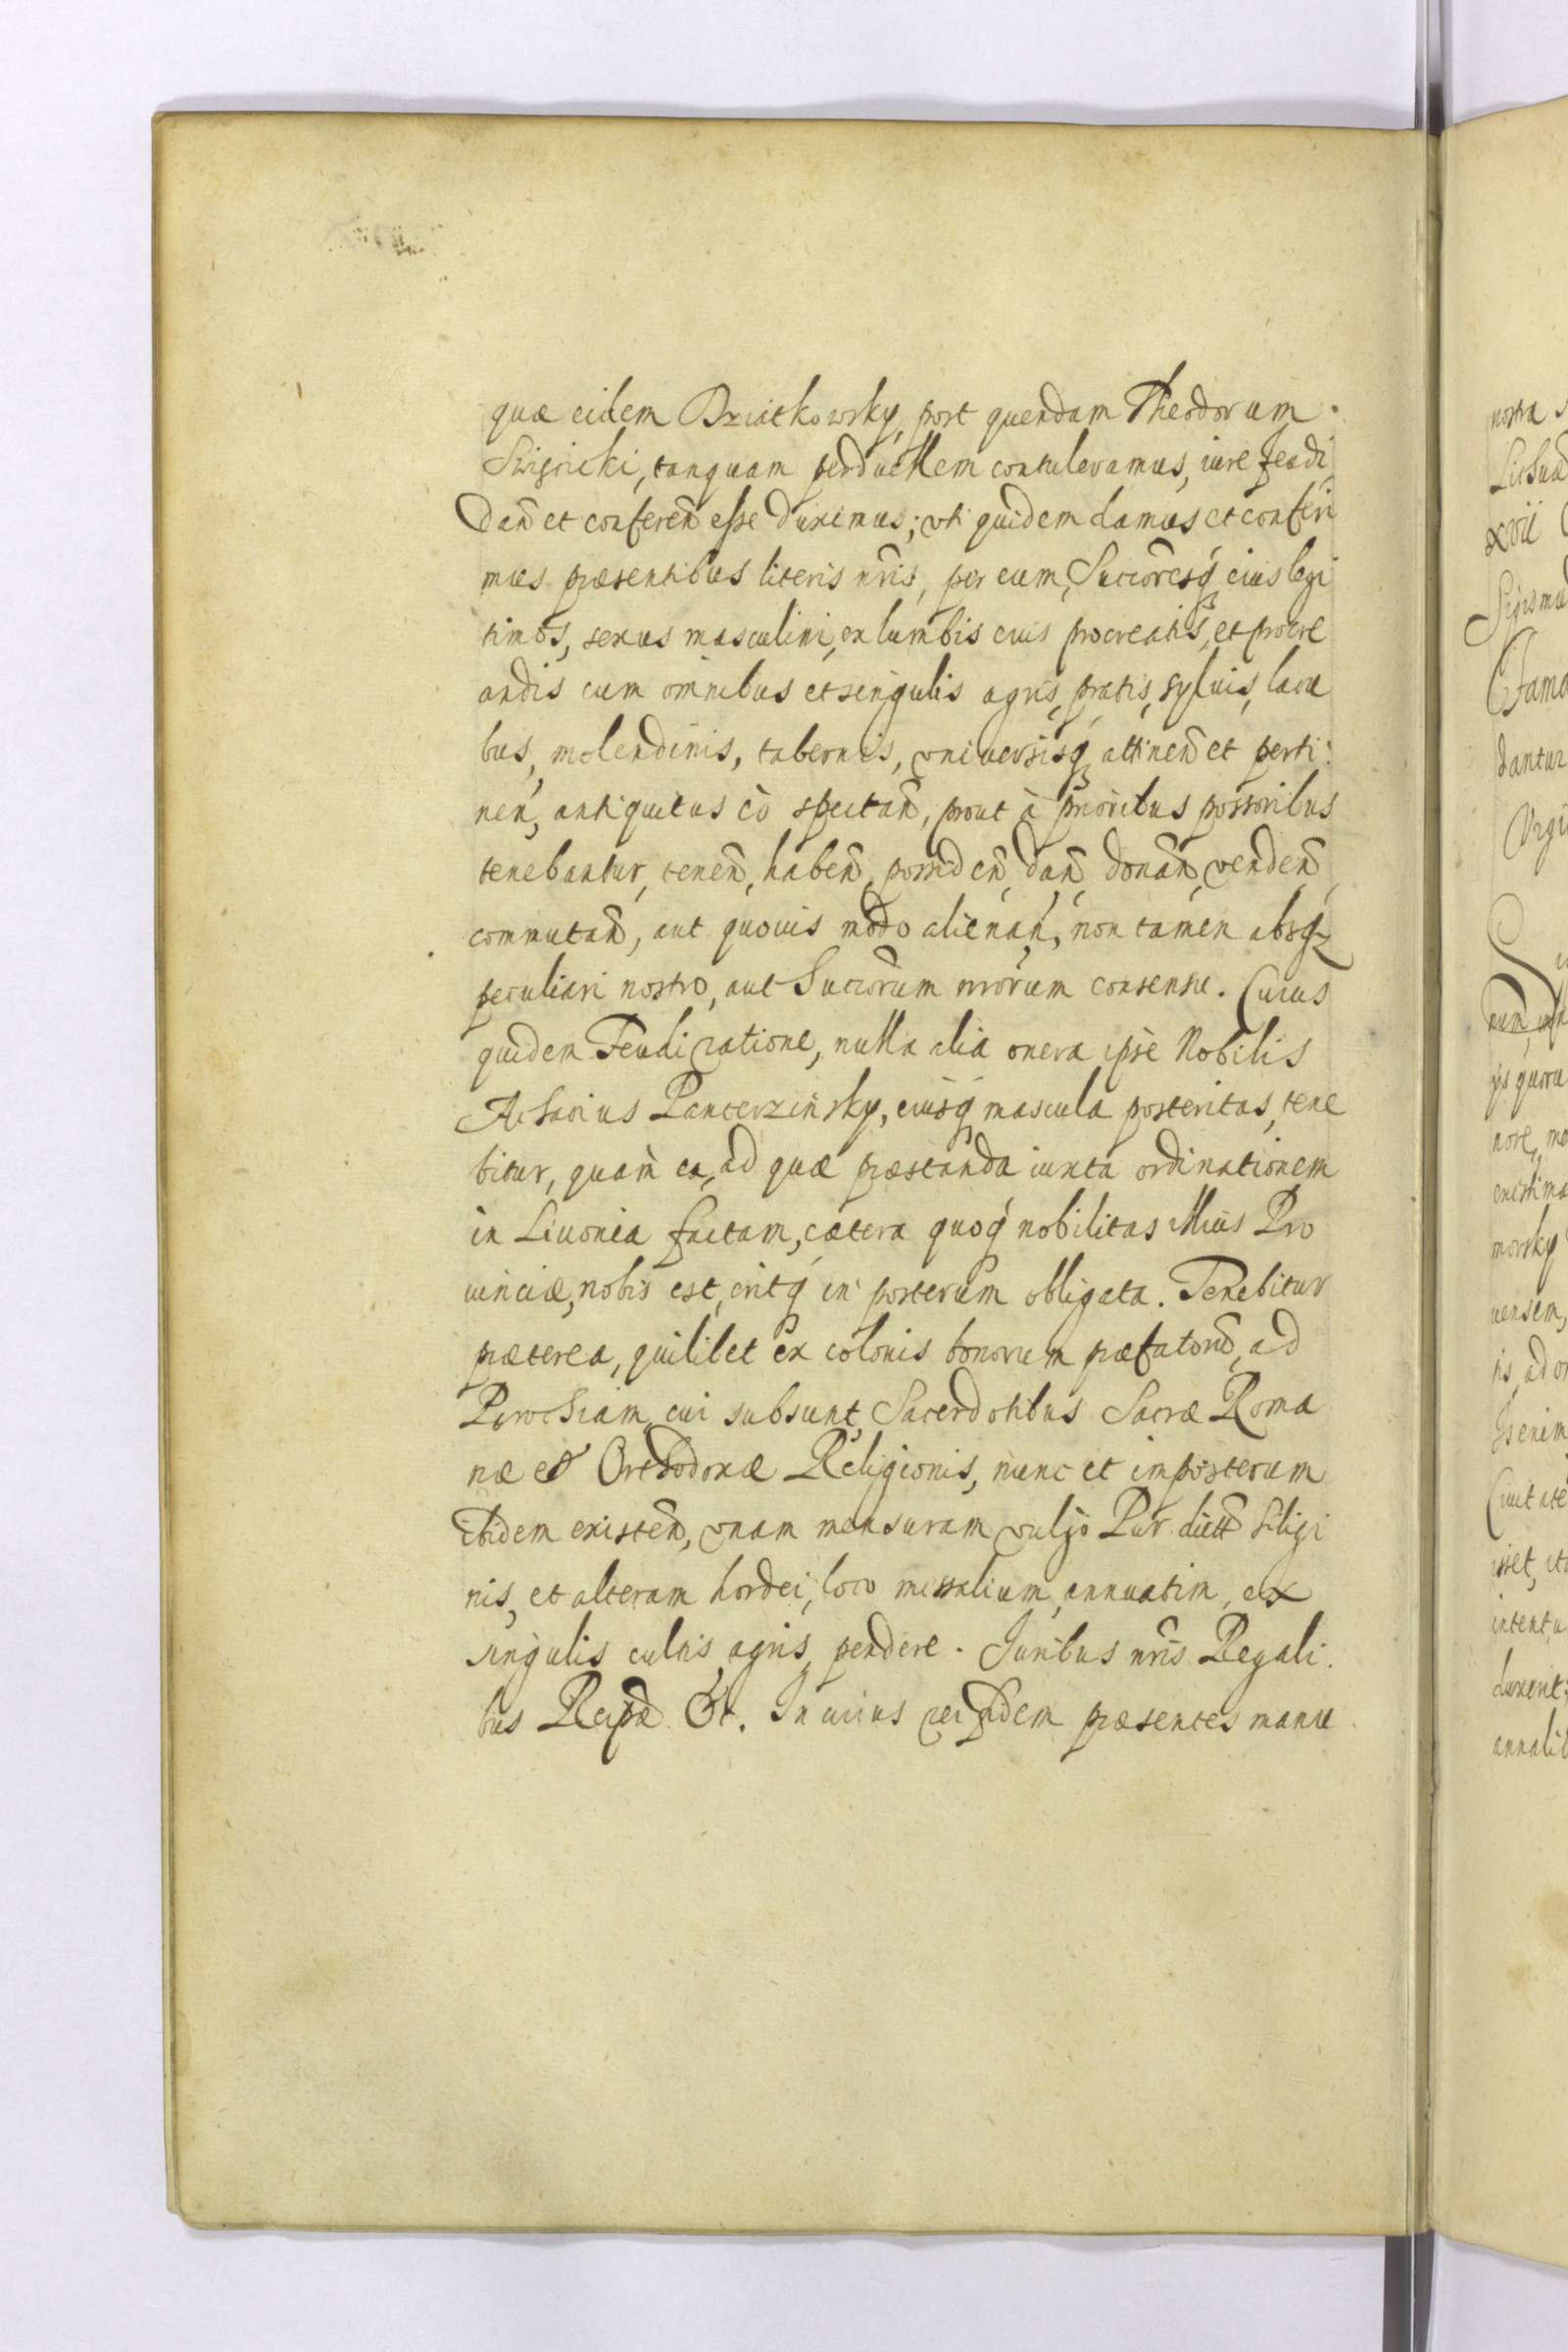 quæ eidem Dziatkowsky, post quendam Theodorum
Skignicki, tanquam perduellem contuleramus, iure feudi
dan̄ et conferen̄ esse duximus; vti quidem damus et conferi
mus præsentibus literis nr̄is, per eum, Succōresq́ eius legi
timos, sexus masculini, ex lumbis euis procreatis, et procre
andis cum omnibus et singulis agris, pratis, syluis, lacu
bus, molendinis, tabernis, vniuersisq́ attinen̄ et perti
nen̄, antiquitus eò spectan̄, prout à prioribus possoribus
tenebantur, tenen̄, haben̄, possiden̄, dan̄, donan̄, venden̄,
commutan̄, aut quouis modo alienan̄, non tamen absq
peculiari nostro, aut Succōrum nrōrum consensu. Cuius
quidem Feudi ratione, nulla alia onera ipse Nobilis
Achacius Pancerzinsky, eiusq́ mascula posteritas, tene
bitur, quàm ea, ad quæ præstanda iuxta ordinationem
in Liuonia factam, cætera quoq́ nobilitas illius Pro
uinciæ, nobis est, eritq́ in posterum obligata. Tenebitur
præterea, quilibet ex colonis bonorum præfatorū, ad
Parochiam cui subsunt, Sacerdotibus Sacræ Roma
næ et Orthodoxæ Religionis, nunc et imposterum
ibidem existen̄, vnam mensuram vulgo Pur dictā siligi
nis, et alteram hordei, loco missalium, annuatim, ex
singulis cultis agris, pendere. Iuribus nr̄is Regali
bus Reipæ &c. In cuius rei fidem præsentes manu
nostra
Lithua
xvii
Sigismu
dantur
Virgi
num, in
ijs quoru
nore, me
existima
morsky
uensem,
is, ad
Is enim
Ciuitate
isset, ita
intentu
duxerit
annali